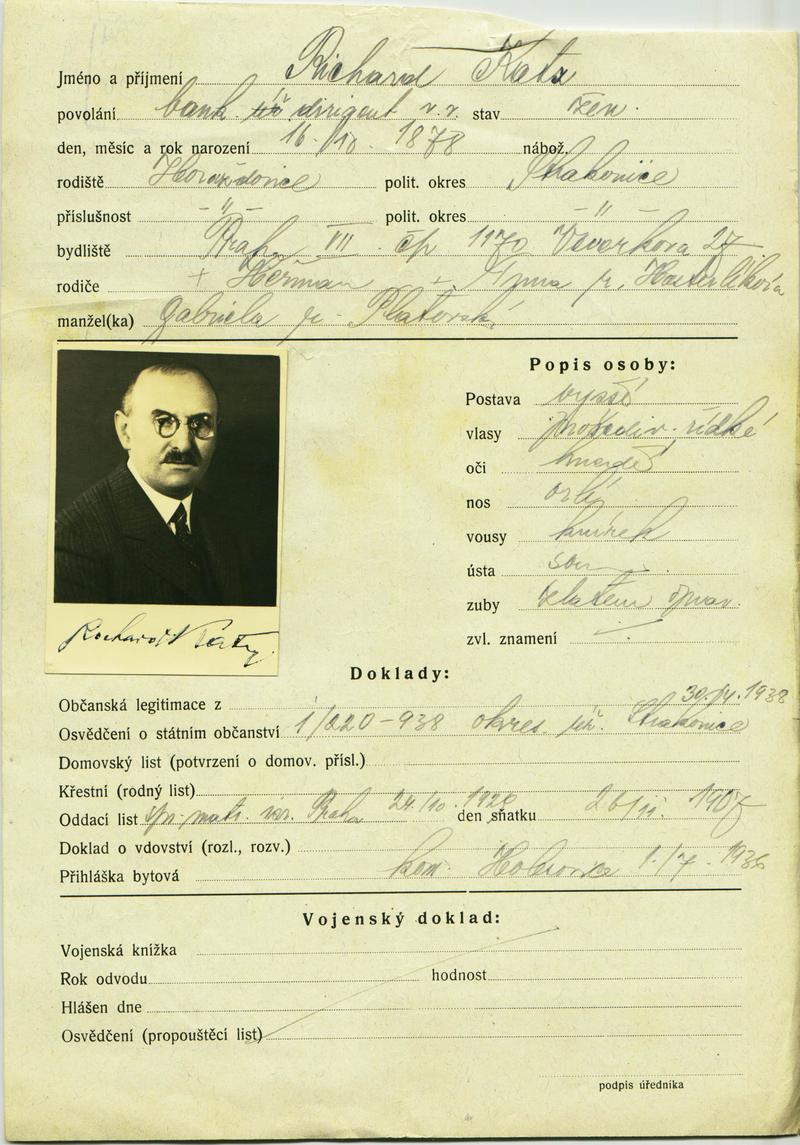 Jméno a příjmení Richard Katz
povolání bank. dirigent v. v. stav žen.
den, měsíc a rok narození 16/10. 1878 nábož.
rodiště Horažďovice polit. okres Strakonice
příslušnost -"- polit. okres -"-
bydliště Praha VII čp 1170 Veverkova 27
rodiče + Heřman + Anna r.
manžel(ka) Gabriela r.
Popis osoby:
Postava vyšší
vlasy prošediv. řídké
oči hnědé
nos orlí
vousy knírek
ústa
zuby zlatem oprav.
zvl. znamení
Richard Katz
Doklady:
Občanská legitimace z
30./4. 1938
Osvědčení o státním občanství 1/220-938 okres. úř. Strakonice
Domovský list (potvrzení o domov. přísl.)
Křestní (rodný list)
Oddací list matr. isr. Praha 24/10. 1920 den sňatku 26/11. 1907
Doklad o vdovství (rozl., rozv.)
Přihláška bytová kom. Holešovice 1./7. 1936
Vojenský doklad:
Vojenská knížka
Rok odvodu hodnost
Hlášen dne
Osvědčení (propouštěcí list)
podpis úředníka